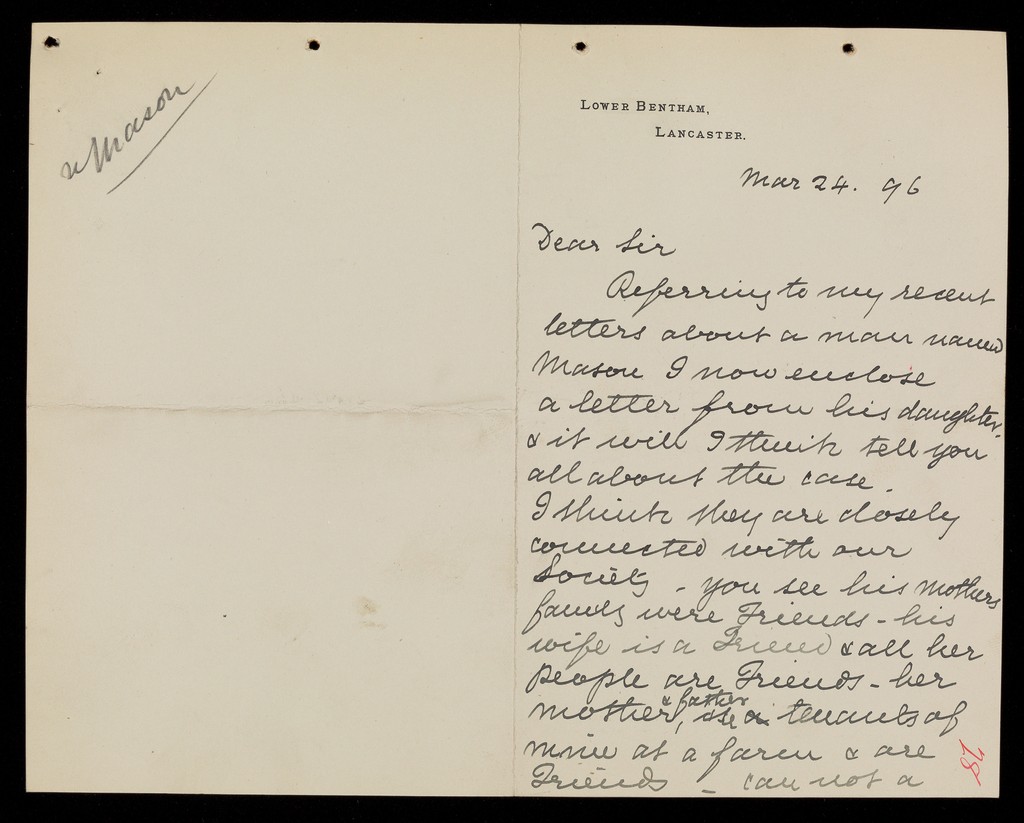 Mason
Lower Bentham,
Lancaster.
Mar 24. 96
Dear Sir
Referring to my recent
letters about a man named
Mason I now enclose
a letter from his daughter.
& it will I think tell you
all about the case.
I think they are closely
connected with our
Society - you see his mothers
family were Friends - his
wife is a Friend & all her
people are Friends - her
mother & father, tenants of
mine at a farm & are
Friends - can not a